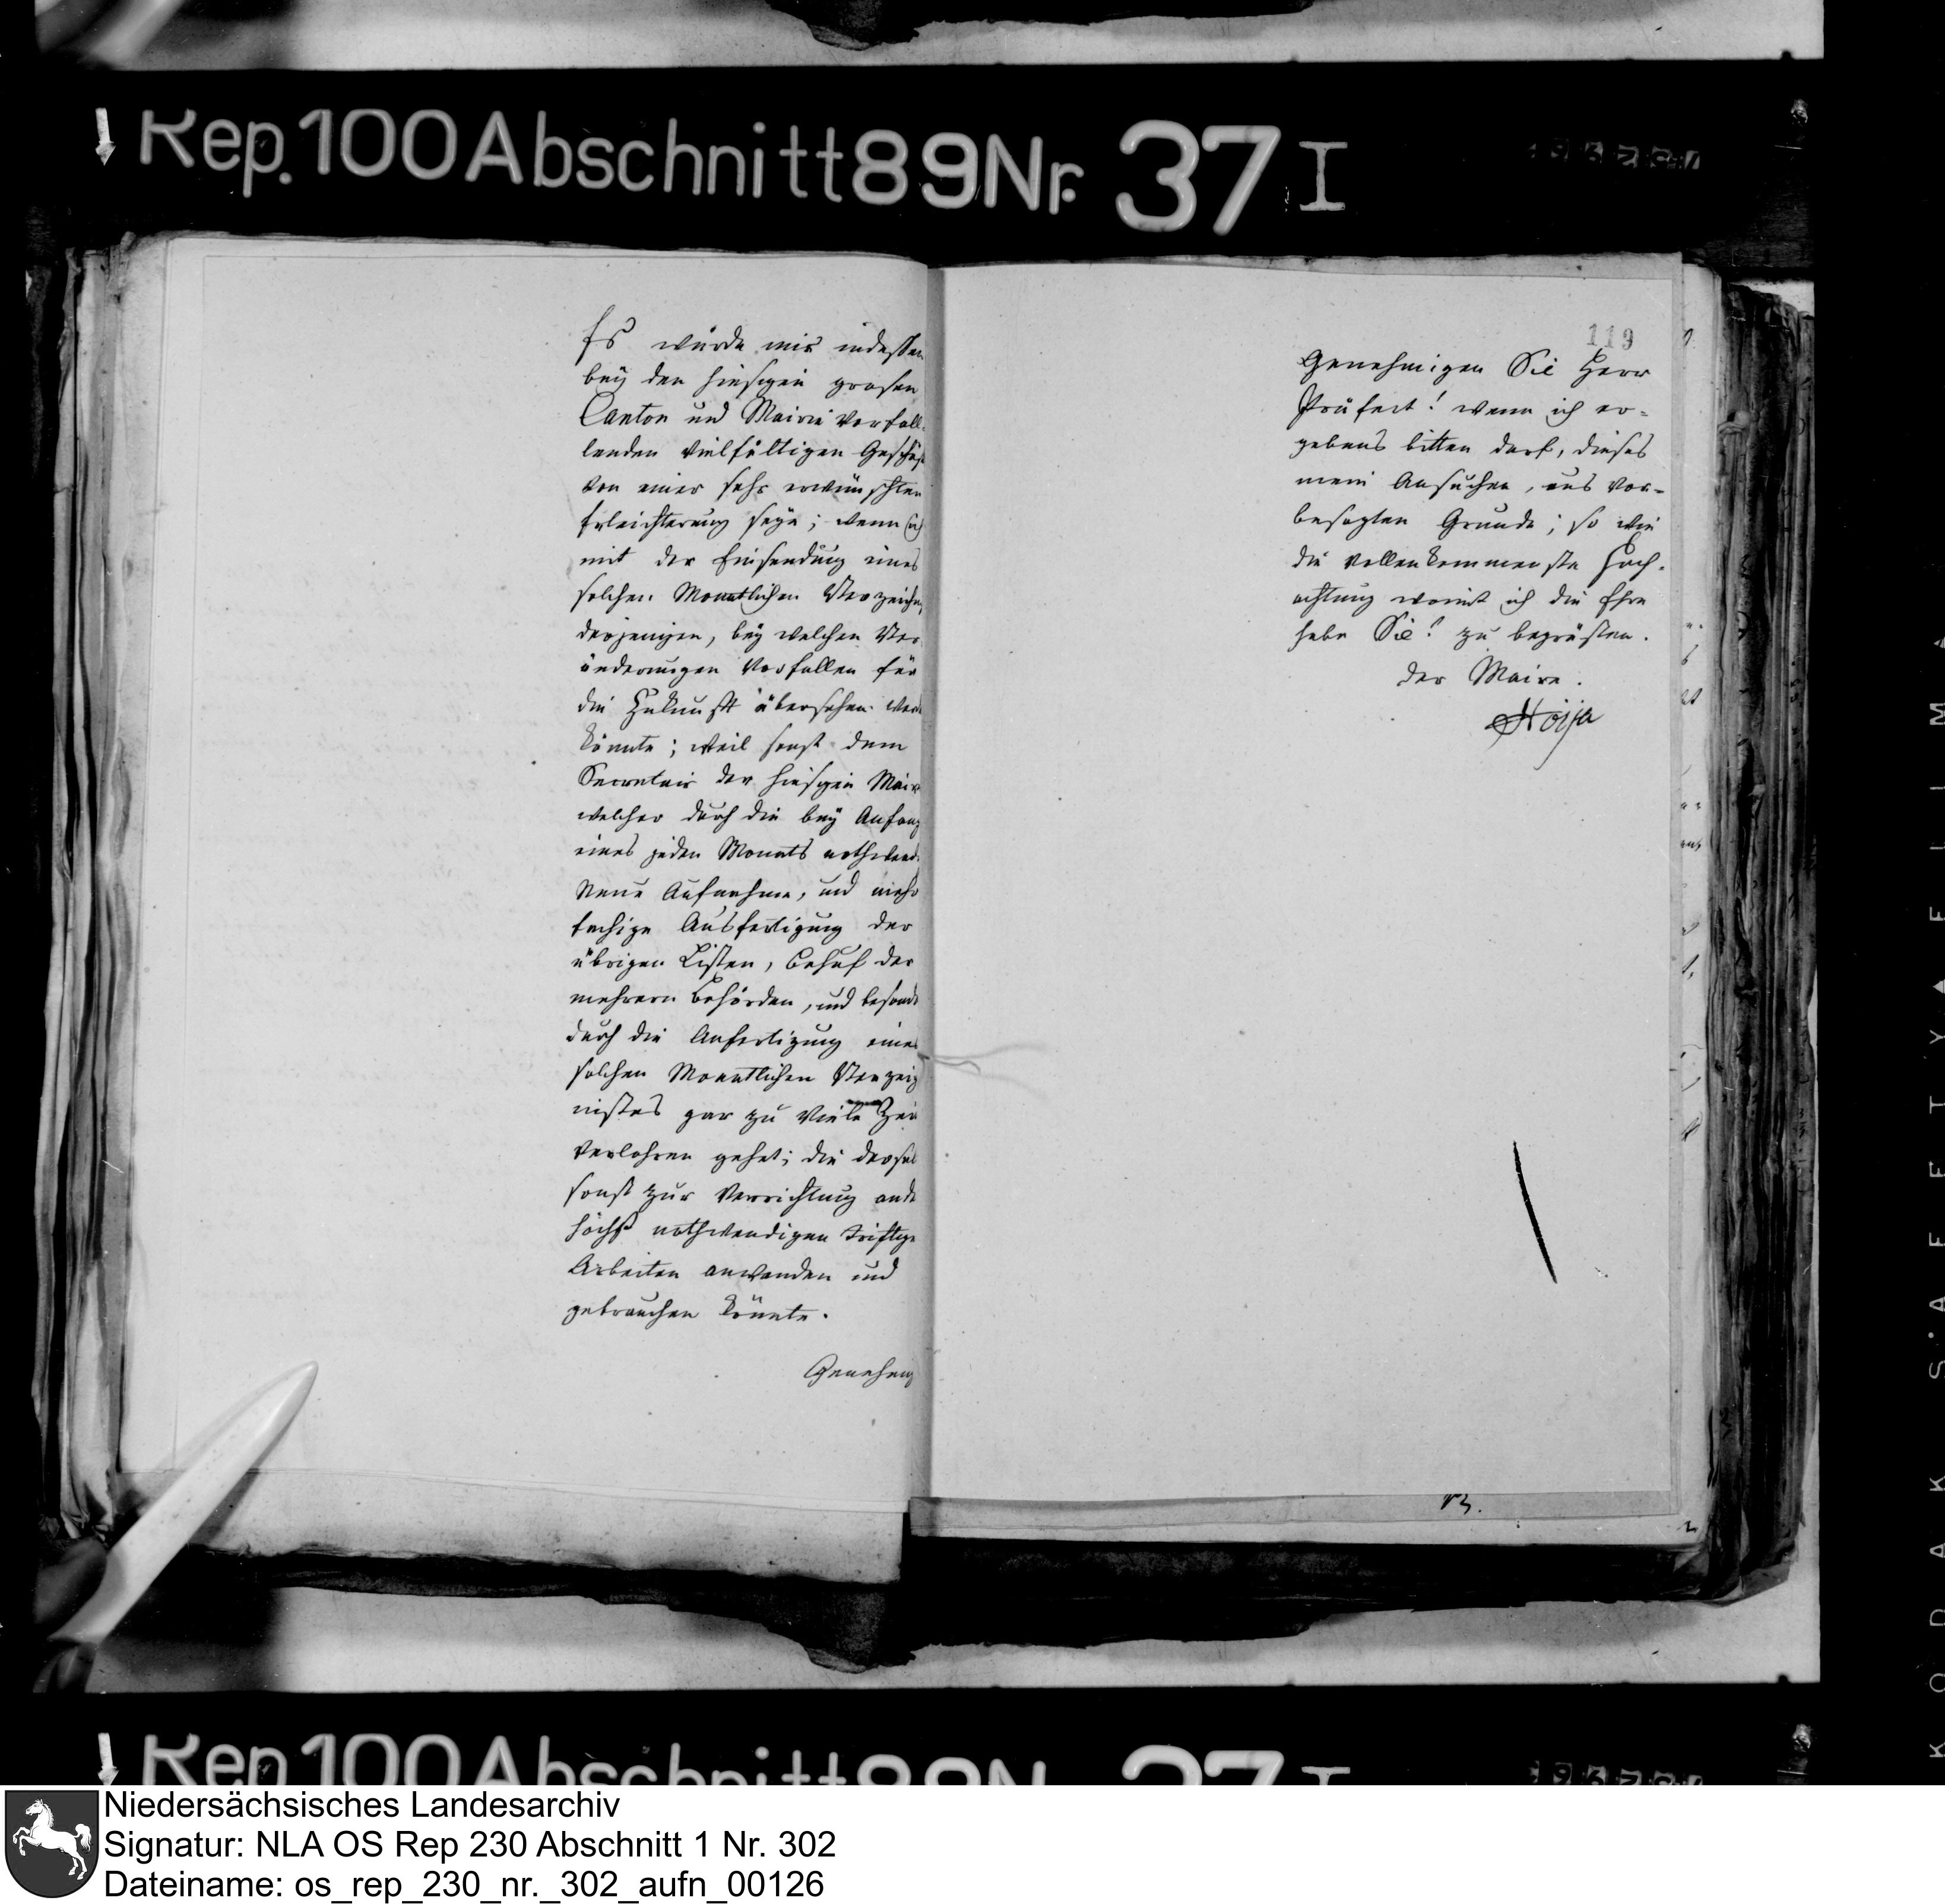 Rep. 100 Abschnitt 89 Nr. 37 I
Es würde mir indessen
bey den hiesigen grosen
Canton und Mairie vorfal-
lenden vielfältigen Geschäft
von einer sehr erwünschten
Erleichterung seyn; wenn ich
mit der Einsendung eines
solchen Monatlichen Verzeichn
derjenigen, bey welchen Ver
änderungen vorfallen für
die Zukunft übersehen werd
könnte; weil sonst dem
Secretair der hiesigen Mair
welcher durch die bey Anfang
eines jeden Monats nothwend
Neue Aufnahme, und mehr
fachige Ausfertigung der
übrigen Listen, behuf der
mehrern Behörden, und besond
durch die Anfertigung eines
solchen Monatlichen Verzeich
nisses gar zu viele Zeit
verlohren gehet; die dersel
sonst zur Verrichtung ande
höchst nothwendigen
Arbeiten anwenden und
gebrauchen könnte.
Genehmig
119
Genehmigen Sie Herr
Präfect! wenn ich er-
gebens bitten darf, dieses
mein Ansuchen, aus vor-
besagten Grunde; so wie
die vollenkommenste Hoch-
achtung womit ich die Ehre
habe Sie! zu begrüssen.
der Maire.
Rep. 100 Abschnitt 89 Nr. 37 I
KODAK S.AFETY FILM
Niedersächsisches Landesarchiv
Signatur: NLA OS Rep 230 Abschnitt 1 Nr. 302
Dateiname: os_rep_230_nr._302_aufn_00126